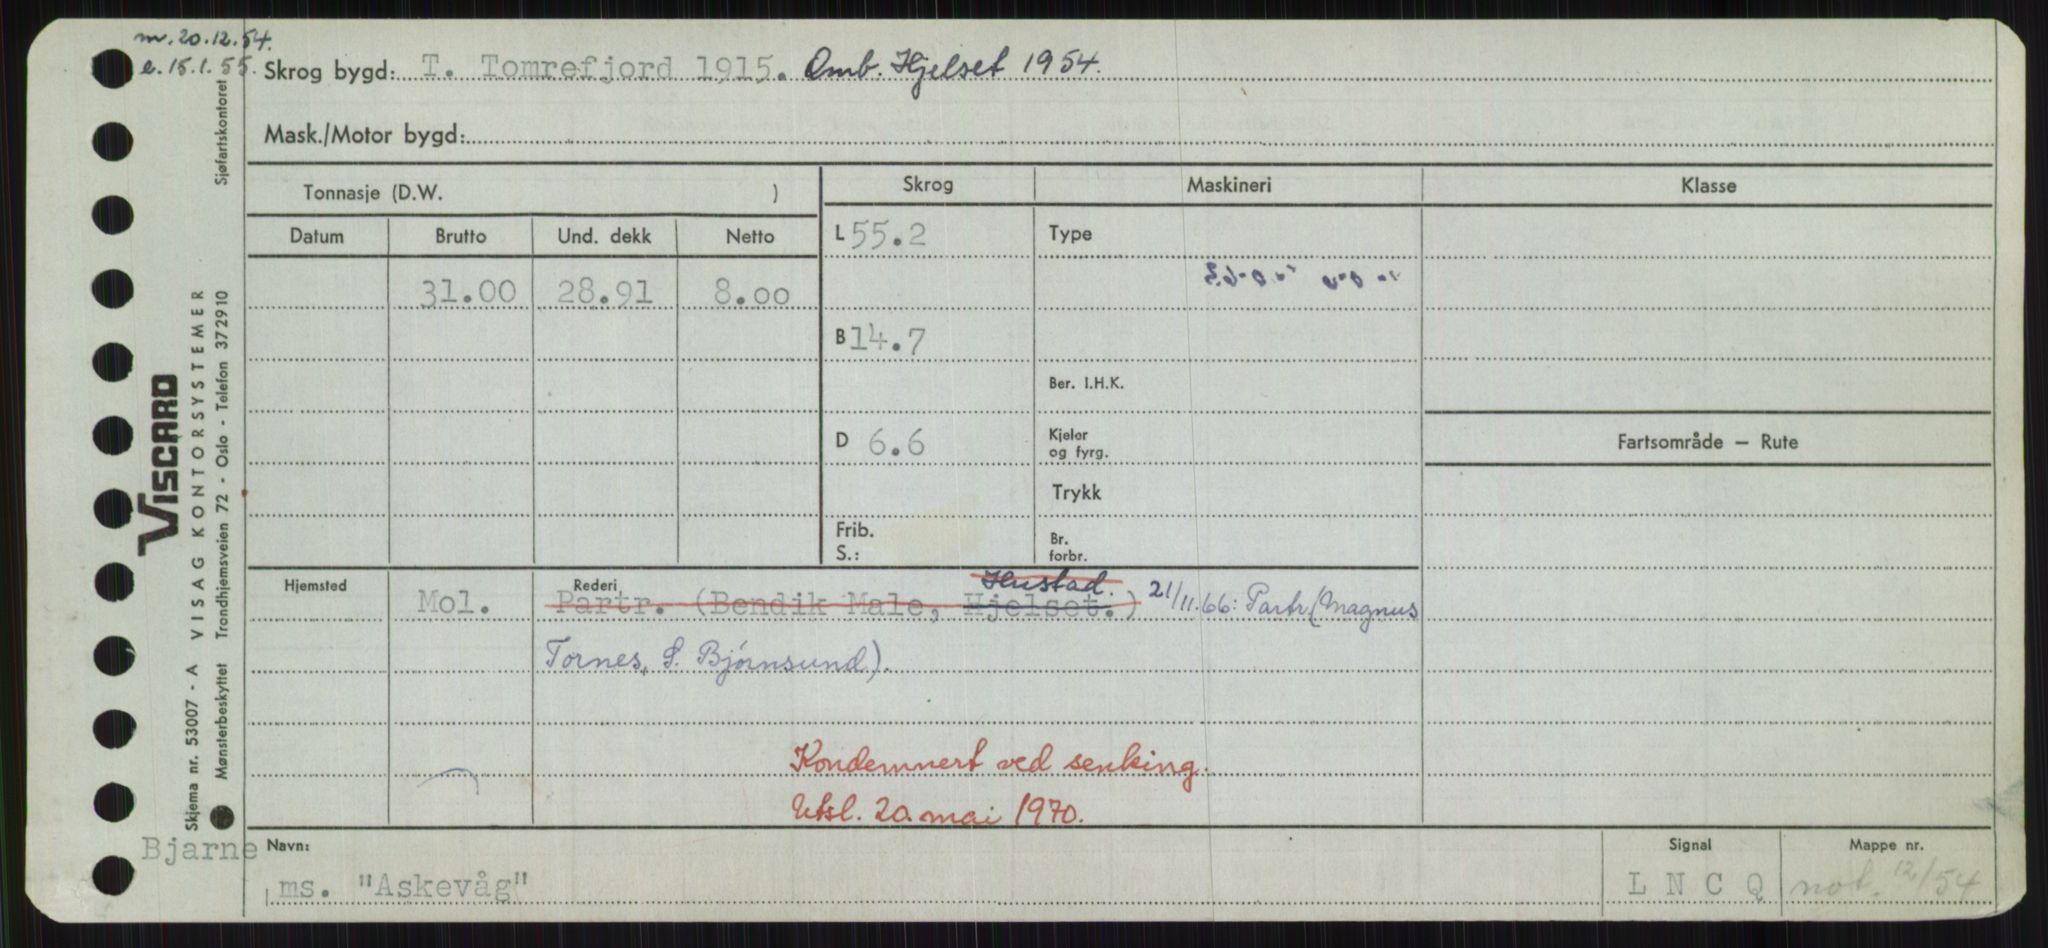 m. 20.12.54.
e. 15.1.55.
Skrog bygd: T. Tomrefjord 1915. Omb. Hjelset 1954.
Mask./Motor bygd:
Tonnasje (D.W. )
Skrog
Maskineri
Klasse
Datum
Brutto
Und. dekk
Netto
L 55.2
Type
31.00
28.91
8.00
B 14.7
Ber. I.H.K.
D 6.6
Kjeler
og fyrg.
Fartsområde — Rute
Trykk
Frib.
S.:
Br.
forbr.
Hjemsted
Mol.
Rederi
Hustad.
Partr. (Bendik Male, Hjelset.) 21/11.66: Partr. (Magnus
Tornes, S. Bjørnsund).
Kondemnert ved senking.
Utsl. 20. mai 1970.
Bjarne
Navn:
ms. "Askevåg"
Signal
L N C Q
Mappe nr.
not. 12/54
Sjøfartskontoret
VISCARD
VISAG KONTORSYSTEMER
Skjema nr. 53007 - A
Mønsterbeskyttet Trondhjemsveien 72 - Oslo - Telefon 372910